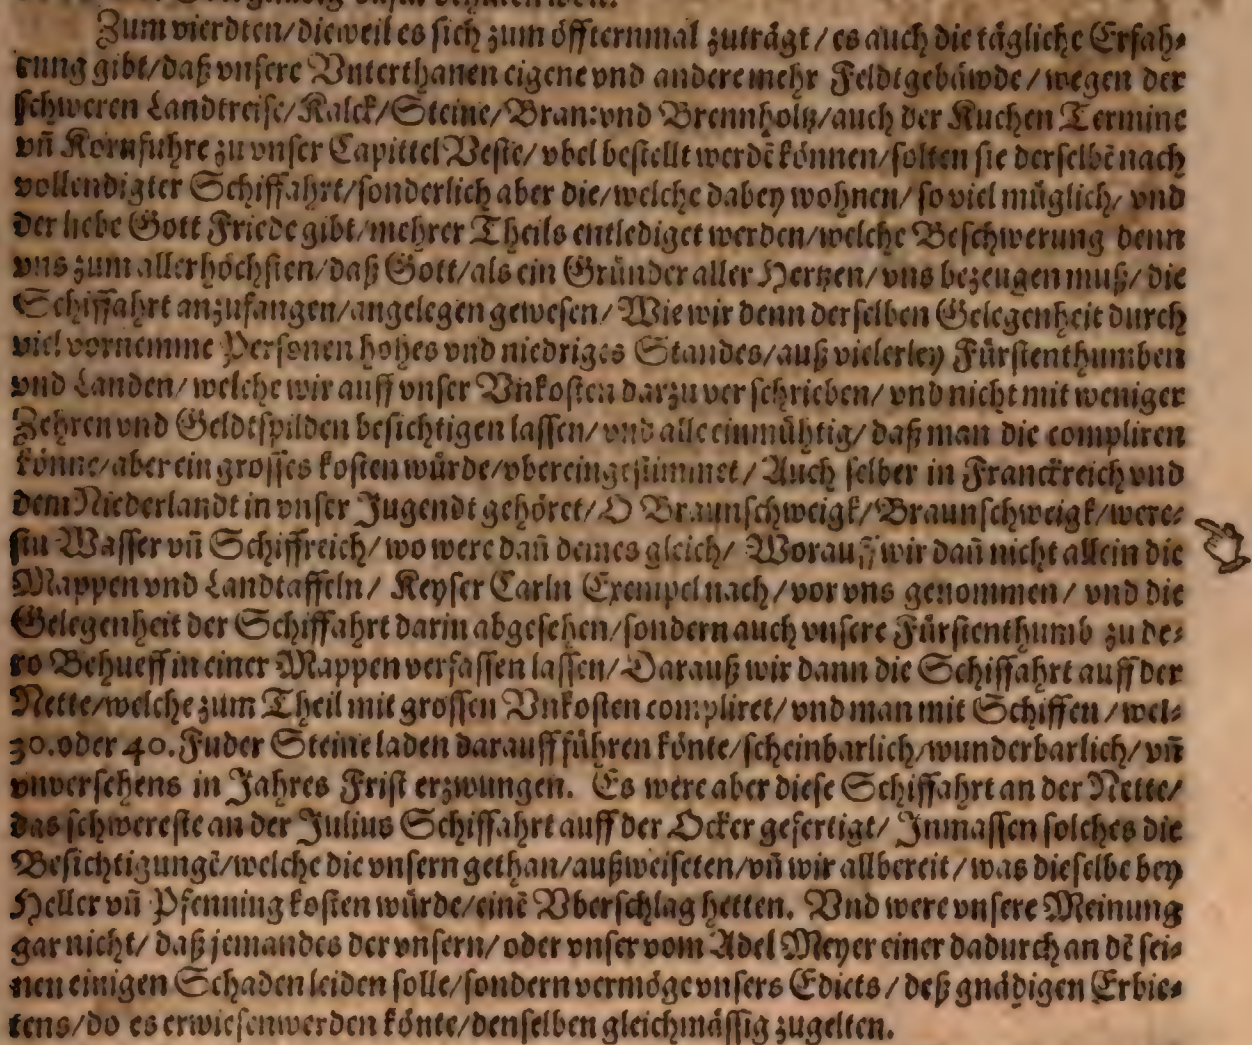 Zum vierdten/dieweil es sich zum öffternmal zuträgt/es auch die tägliche Erfah-
rung gibt/daß vnsere Vnterthanen eigene vnd andere mehr Feldtgebäwde/wegen der
schweren Landtreise/Kalck/Steine/Bran: vnd Brennholtz/auch der Kuchen Termine
vñ Kornfuhre zu vnser Capittel Veste/vbel bestellt werdē können/solten sie derselbē nach
vollendigter Schiffahrt/sonderlich aber die/welche dabey wohnen/so viel müglich/vnd
der liebe Gott Friede gibt/mehrer Theils entlediget werden/welche Beschwerung denn
vns zum allerhöchsten/daß Gott/als ein Gründer aller Hertzen/vns bezeugen muß/die
Schiffahrt anzufangen/angelegen gewesen/Wie wir denn derselben Gelegenheit durch
viel vornemme Personen hohes vnd niedriges Standes/auß vielerley Fürstenthumben
vnd Landen/welche wir auff vnser Vnkosten darzu verschrieben/vnd nicht mit weniger
Zehren vnd Geldtspilden besichtigen lassen/vnd alle einmühtig/daß man die compliren
könne/aber ein grosses kosten würde/vbereingestimmet/Auch selber in Franckreich vnd
dem Niederlandt in vnser Jugendt gehöret/O Braunschweigk/Braunschweigk/were-
stu Wasser vñ Schiffreich/wo were dañ deines gleich/Worauß wir dañ nicht allein die
Mappen vnd Landtaffeln/Keyser Carln Exempel nach/vor vns genommen/vnd die
Gelegenheit der Schiffahrt darin abgesehen/sondern auch vnsere Fürstenthumb zu de-
ro Behueff in einer Mappen verfassen lassen/Darauß wir dann die Schiffahrt auff der
Nette/welche zum Theil mit grossen Vnkosten compliret/vnd man mit Schiffen/wel-
30. oder 40. Fuder Steine laden darauff führen könte/scheinbarlich/wunderbarlich/vñ
vnversehens in Jahres Frist erzwungen. Es were aber diese Schiffahrt an der Nette/
das schwereste an der Julius Schiffahrt auff der Ocker gefertigt/Inmassen solches die
Besichtigungē/welche die vnsern gethan/außweiseten/vñ wir allbereit/was dieselbe bey
Heller vñ Pfenning kosten würde/einē Vberschlag hetten. Vnd were vnsere Meinung
gar nicht/daß jemandes der vnsern/oder vnser vom Adel Meyer einer dadurch an dē sei-
nen einigen Schaden leiden solle/sondern vermöge vnsers Edicts/deß gnädigen Erbie-
tens/do es erwiesen werden könte/denselben gleichmässig zugelten.